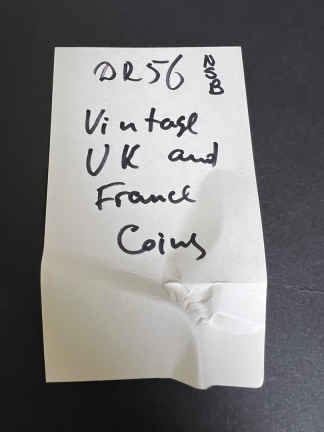 DR56 NSB
Vintage
UK and
France
Coins